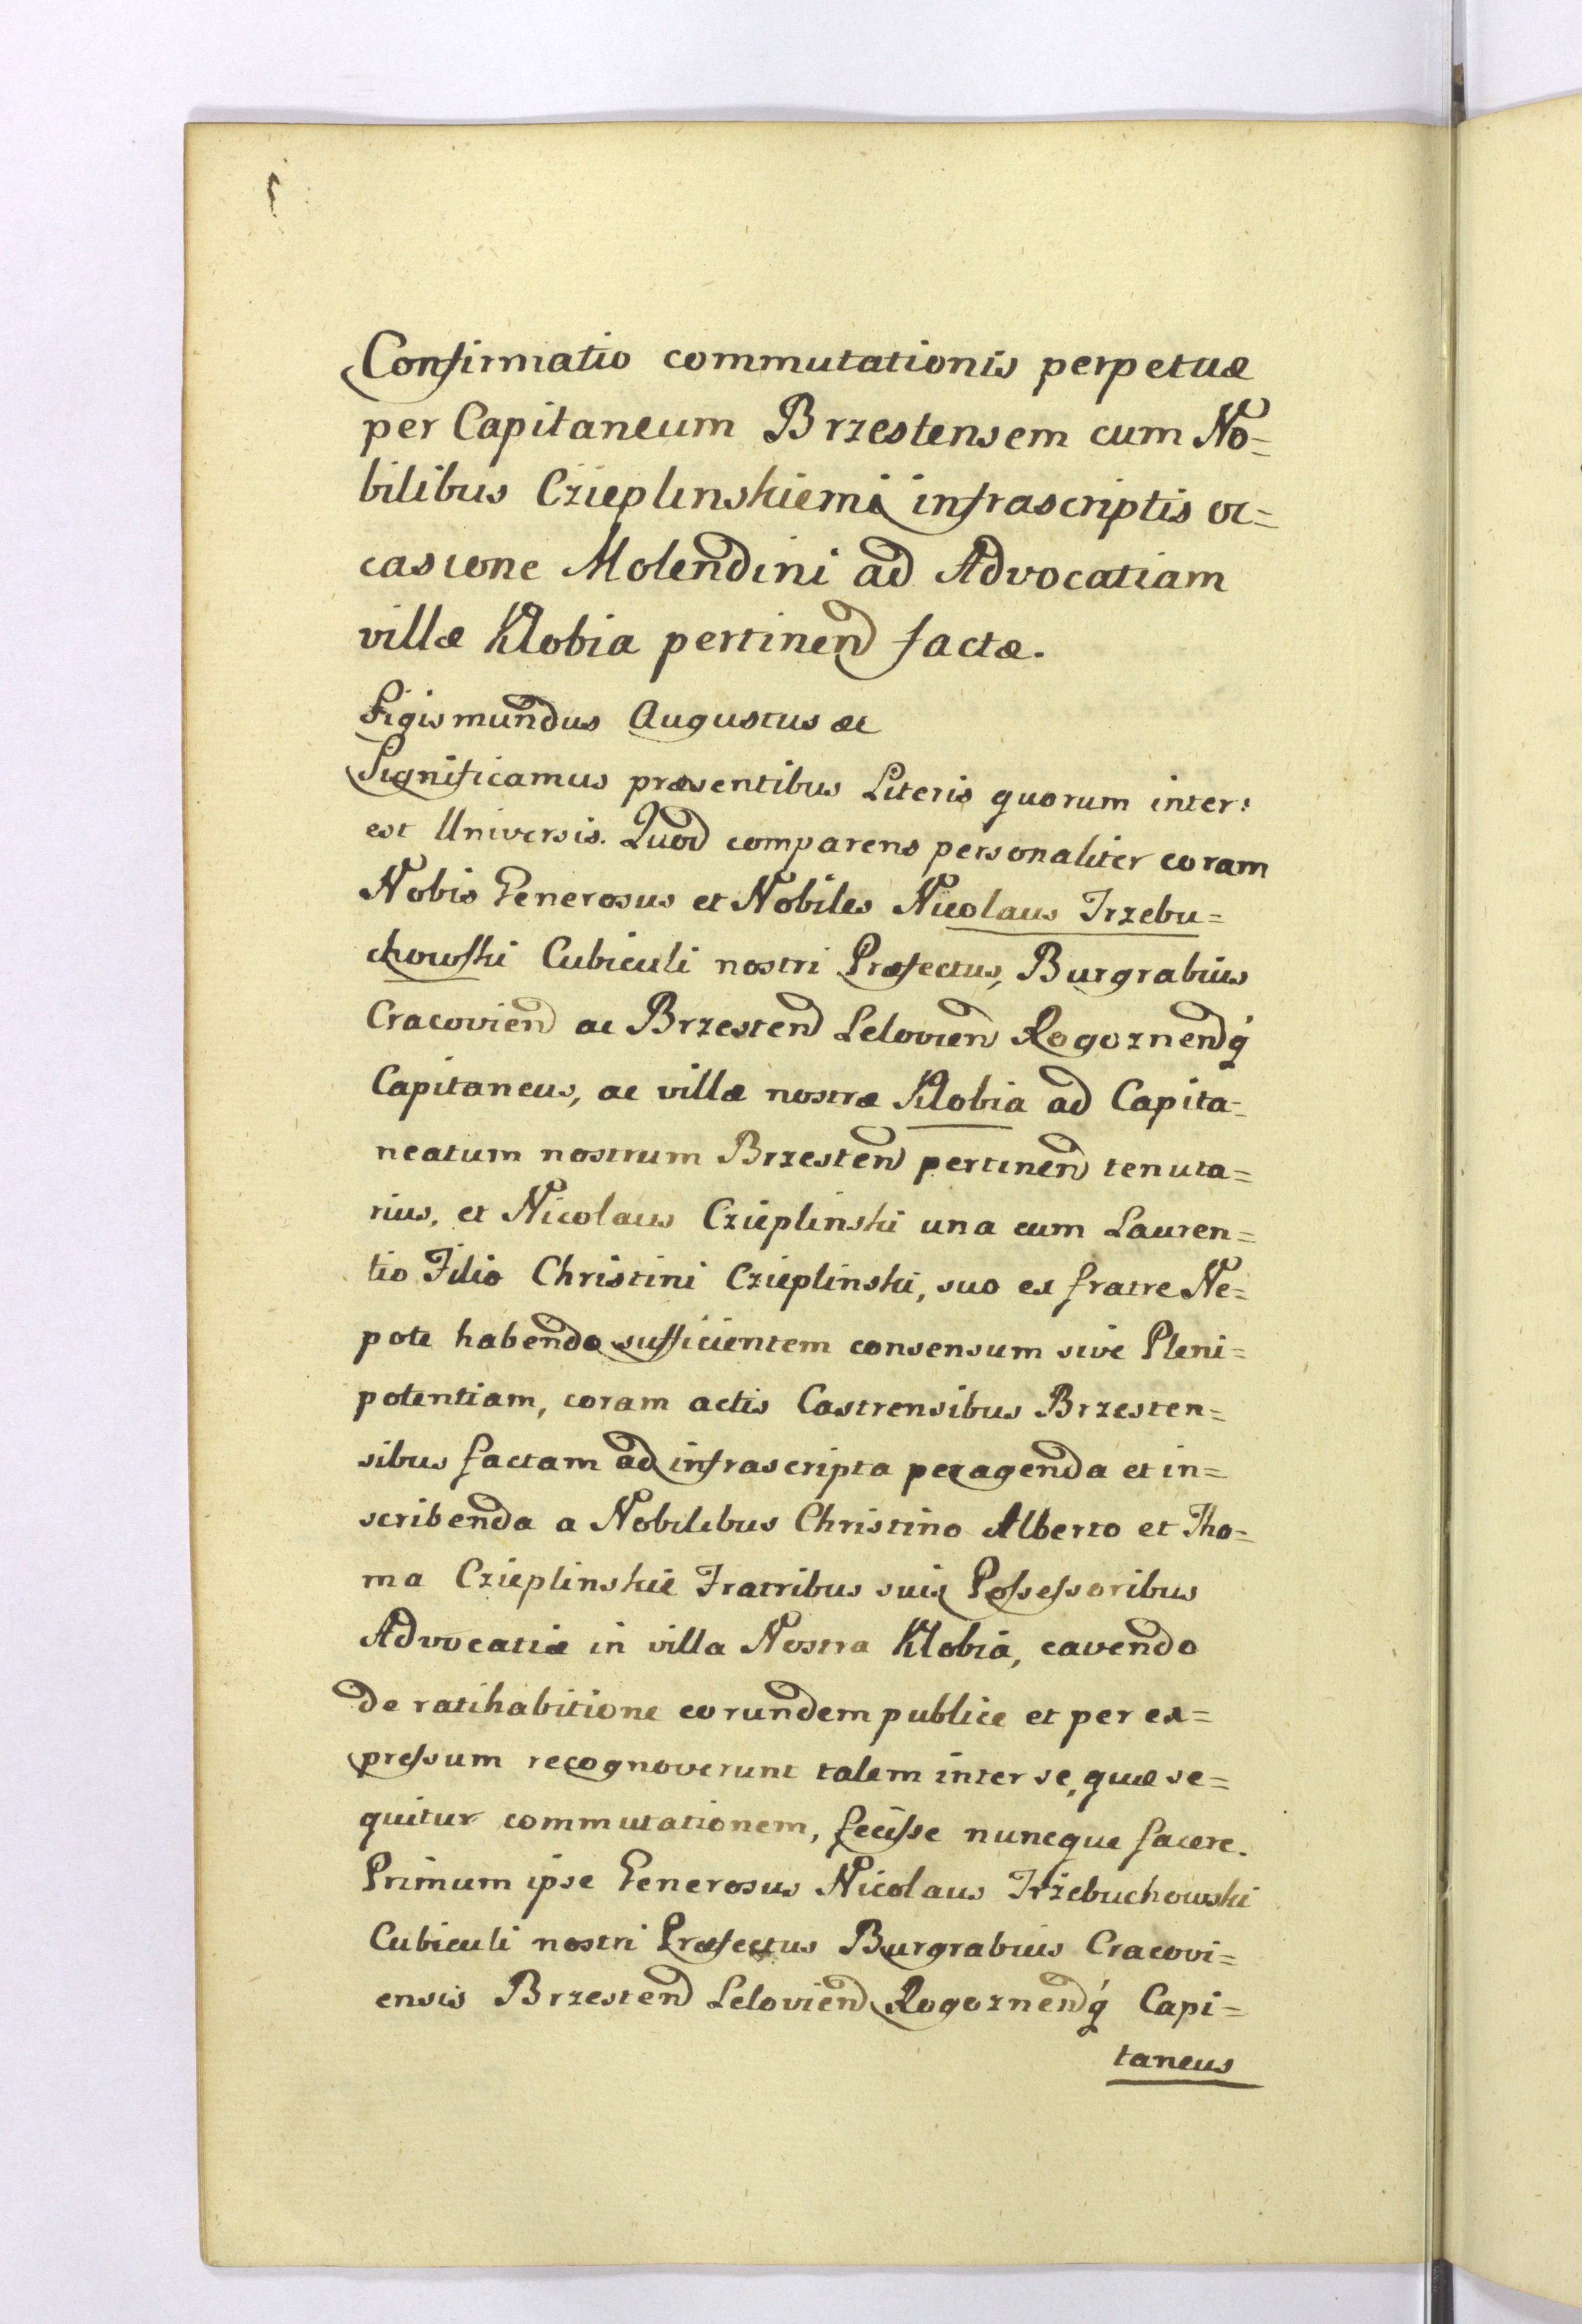 Confirmatio commutationis perpetuæ
per Capitaneum Brzestensem cum No=
bilibus Czieplinskiemi infrascriptis oc=
casione Molendini ad Advocatiam
villæ Klobia pertinend factæ.
Sigismundus Augustus &c
Significamus præsentibus Literis quorum inter:
est Universis. Quod comparens personaliter coram
Nobis Generosus et Nobiles Nicolaus Trzebu=
chowski Cubiculi nostri Præfectus, Burgrabius
Cracoviend ac Brzestend Leloviend Rogoznendq́
Capitaneus, ac villæ nostræ Klobia ad Capita=
neatum nostrum Brzestend pertinend tenuta=
rius, et Nicolaus Czieplinski una cum Lauren=
tio Filio Christini Czieplinski, suo ex fratre Ne=
pote habendo sufficientem consensum sive Pleni=
potentiam, coram actis Castrensibus Brzesten=
sibus factam ad infrascripta peragenda et in=
scribenda a Nobilibus Christino Alberto et Tho=
ma Czieplinskie Fratribus suis Possessoribus
Advocatiæ in villa Nostra Klobia, cavendo
de ratihabitione eorundem publice et per ex=
pressum recognoverunt talem inter se, quæ se=
quitur commutationem, fecisse nuncque facere.
Primum ipse Generosus Nicolaus Trzebuchowski
Cubiculi nostri Præfectus Burgrabius Cracovi=
ensis Brzestend Leloviend Rogoznendq́ Capi=
taneus